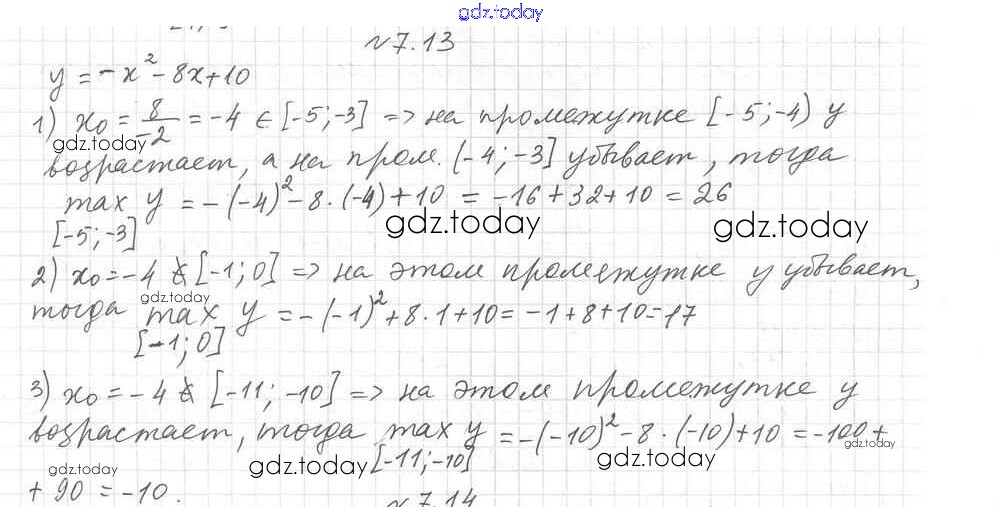 gdz.today
№7.13
y = -x² - 8x + 10
1) x₀ = 8/-2 = -4 ∈ [-5; -3] => на промежутке [-5; -4) y
gdz.today
возрастает, а на пром. (-4; -3] убывает, тогда
max y = -(-4)² - 8 · (-4) + 10 = -16 + 32 + 10 = 26
[-5; -3]
gdz.today gdz.today
2) x₀ = -4 ∉ [-1; 0] => на этом промежутке y убывает,
gdz.today
тогда max y = -(-1)² + 8 · 1 + 10 = -1 + 8 + 10 = 17
[-1; 0]
3) x₀ = -4 ∉ [-11; -10] => на этом промежутке y
возрастает, тогда max y = -(-10)² - 8 · (-10) + 10 = -100 +
[-11; -10]
gdz.today gdz.today gdz.today gdz.today
+ 90 = -10.
№7.14